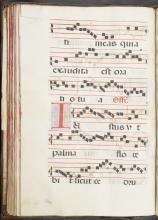 ti meas quia
exaudita est ora
tio tua Offer.
Iustus ut
palma flore
bit sicut ce dru